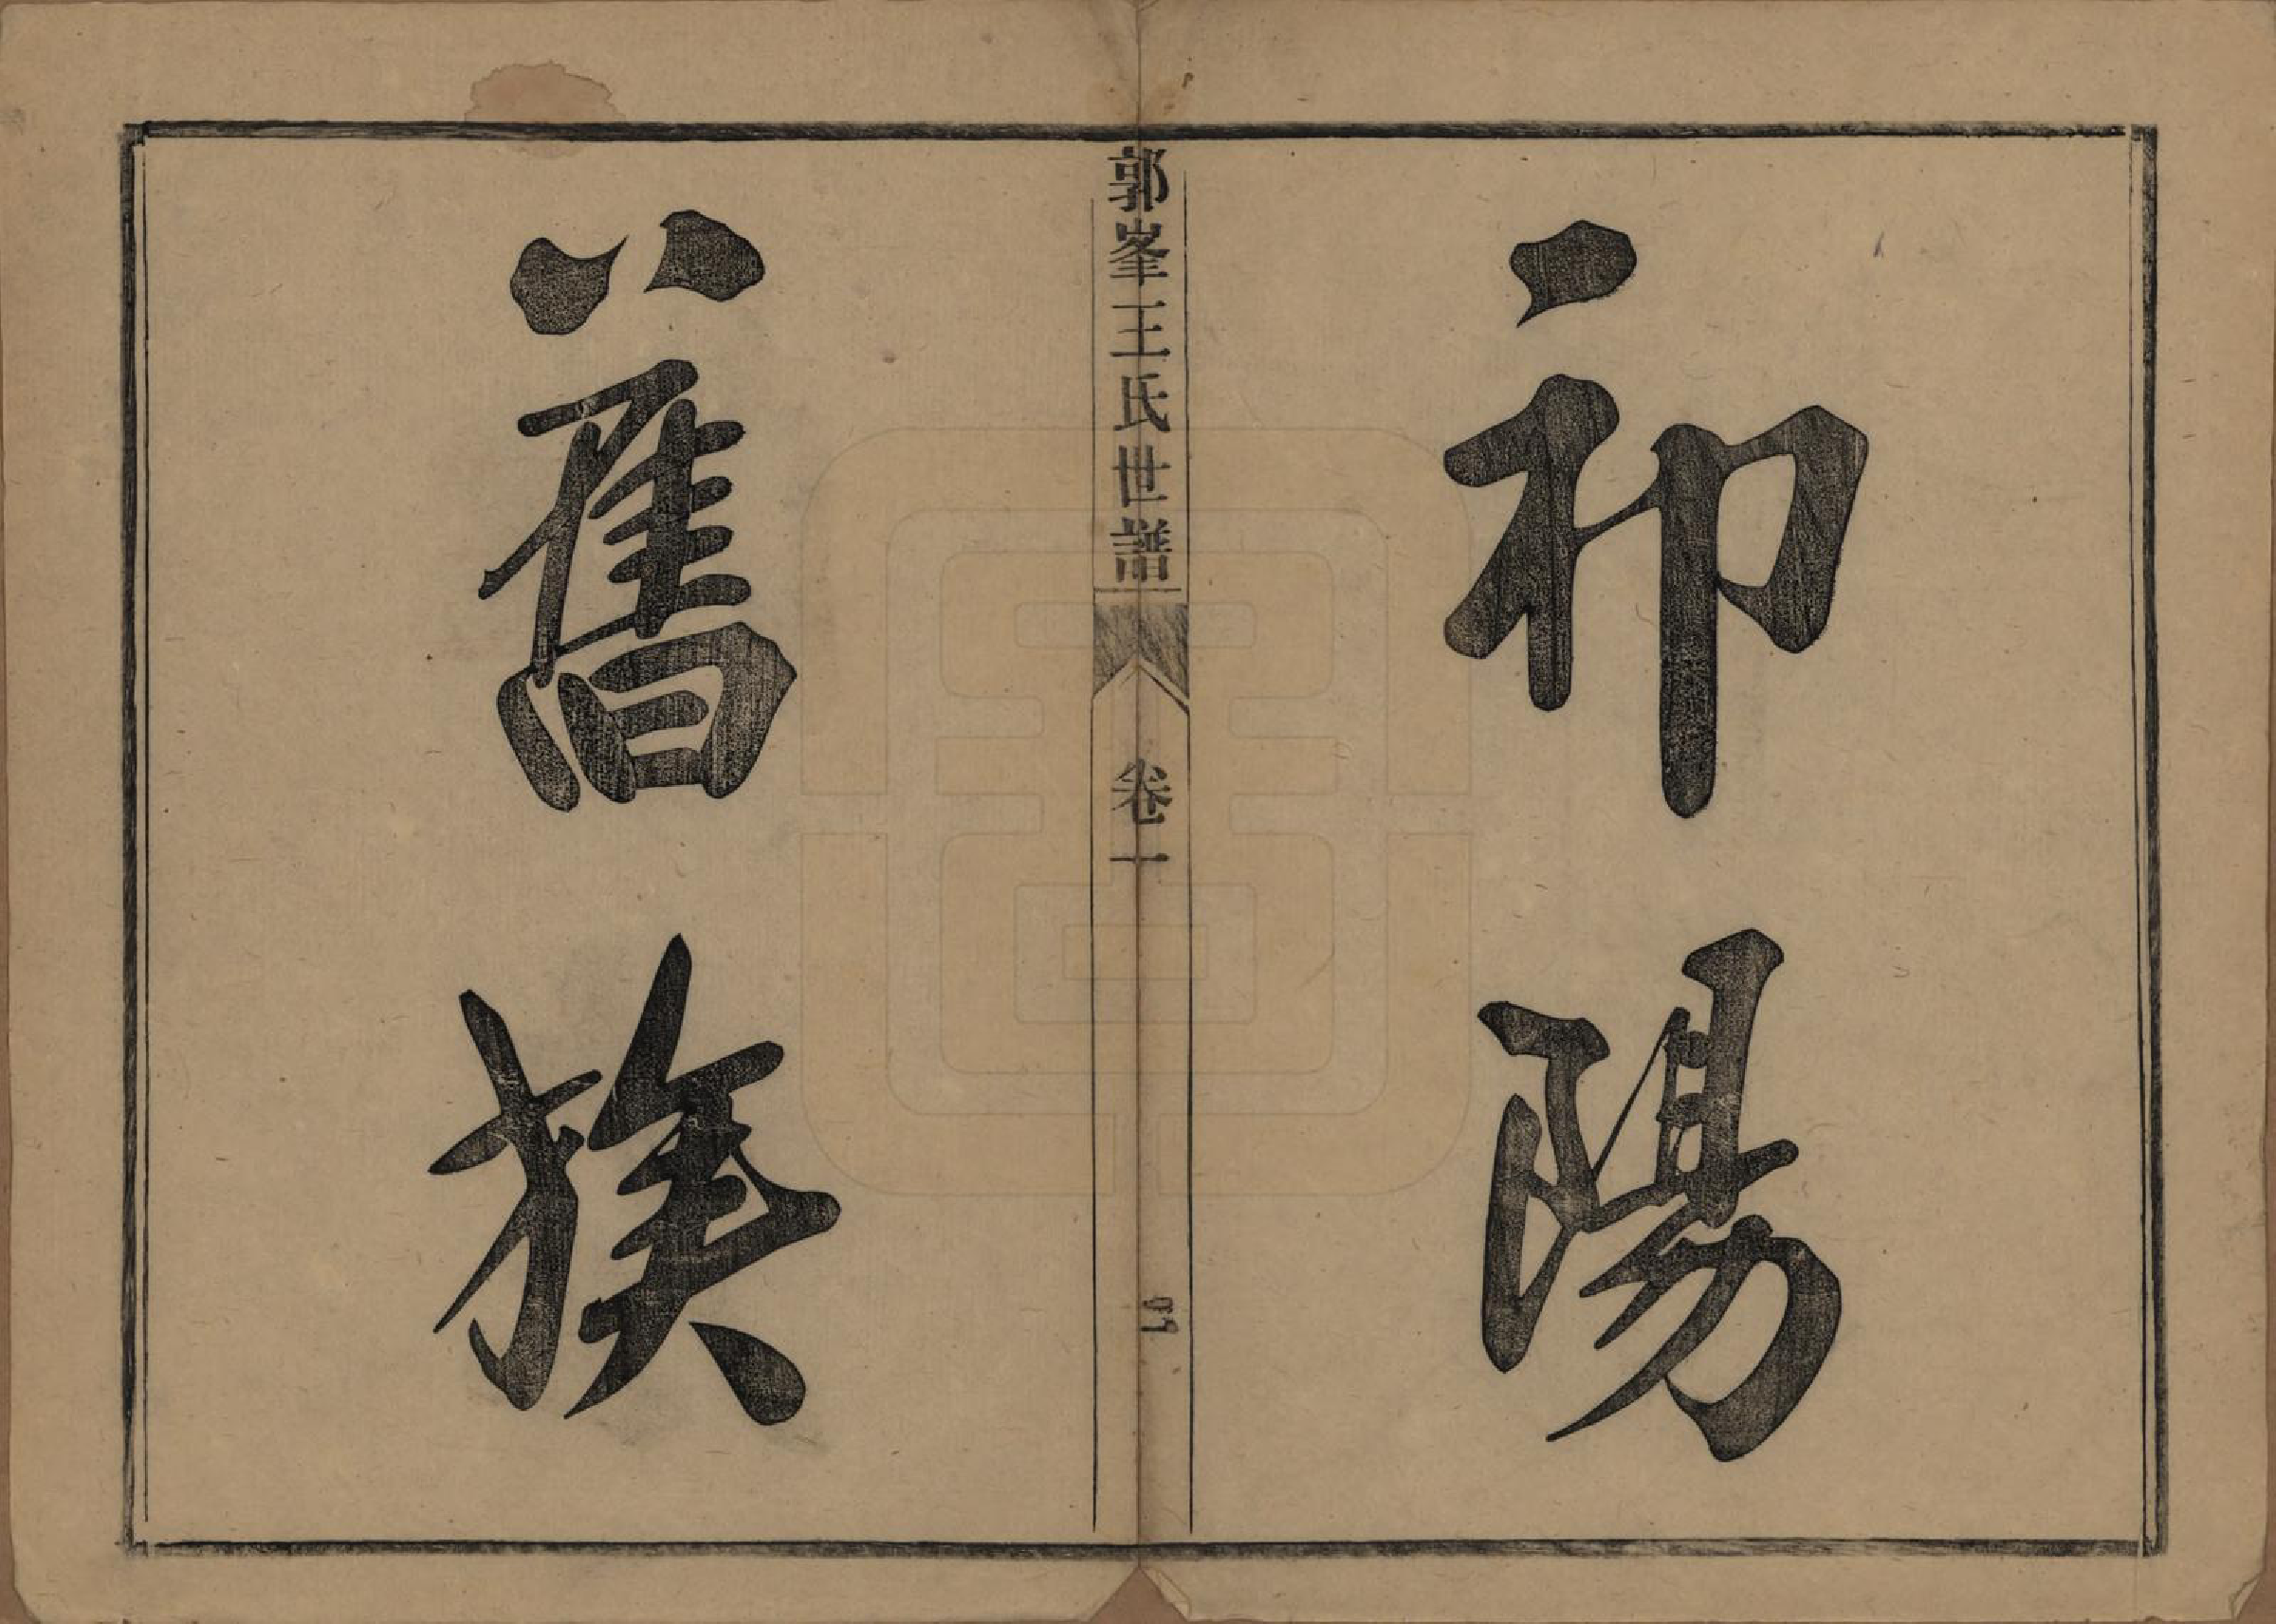 祁陽
郭峯王氏世譜
卷一
舊族